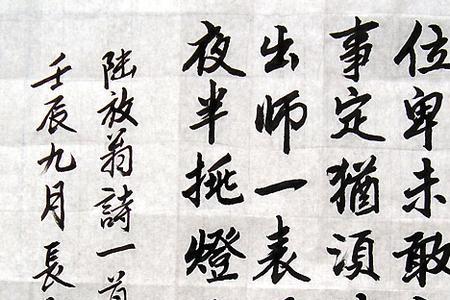 位卑未敢
事定猶須
出师一表
夜半挑燈
陆放翁詩一首
壬辰九月長